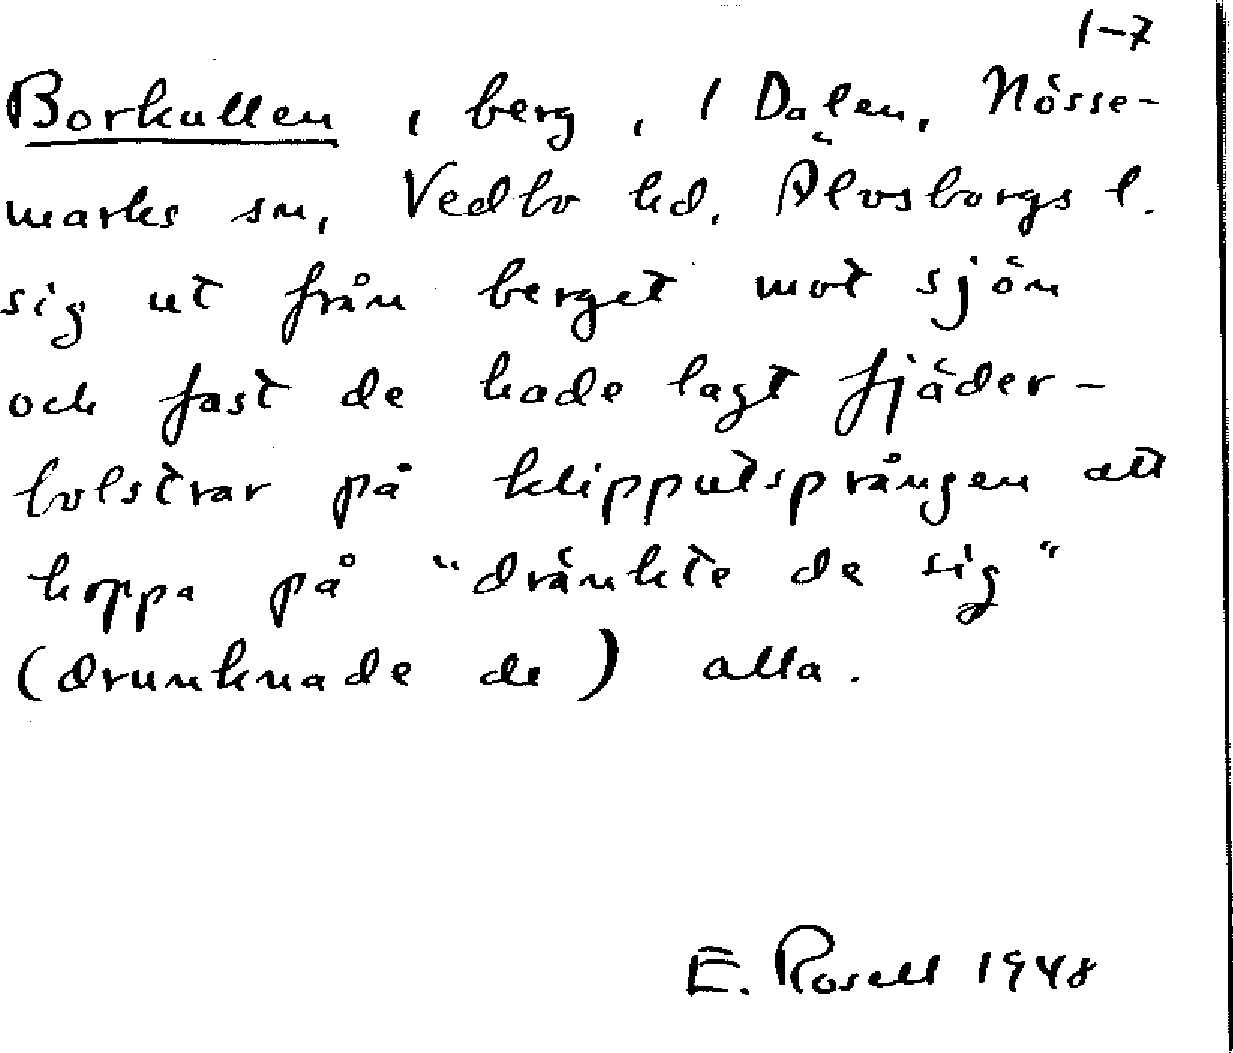 1-7
Borkullen, berg, 1 Dalen, Nösse-
marks sn, Vedbo hd, Älvsborgs l.
sig ut från berget mot sjön
och fast de hade lagt fjäder-
bolstrar på klipputsprången att
hoppa på "dränkte de sig"
(drunknade de) alla.
E. Rosell 1948